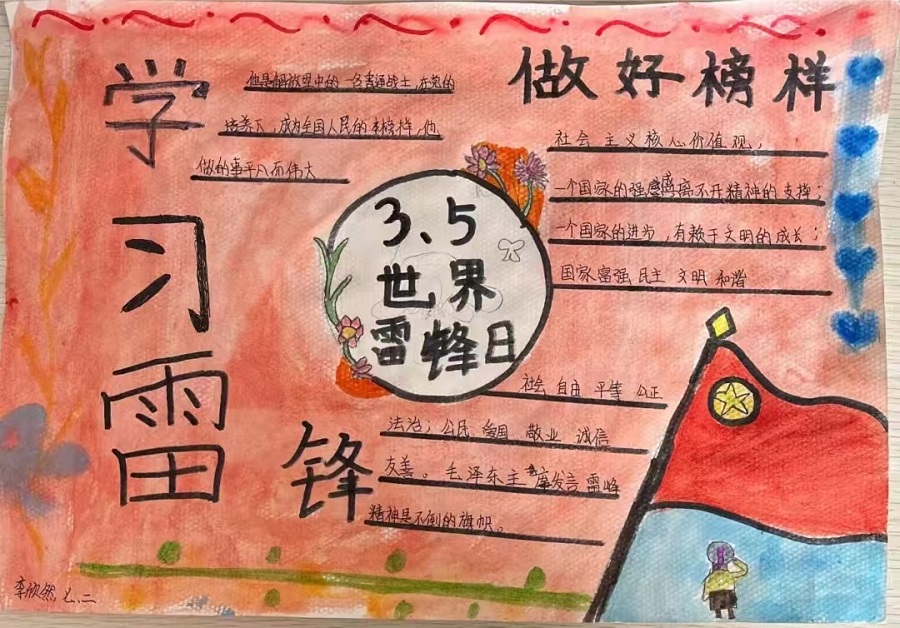 学习雷锋
做好榜样
他是解放军中的一名普通战士,在党的
培养下,成为全国人民的好榜样,他
做的事平凡而伟大
3、5
世界
雷锋日
社会主义核心价值观,
一个国家的强盛离不开精神的支撑;
一个国家的进步,有赖于文明的成长;
国家富强 民主 文明 和谐
社会 自由 平等 公正
法治; 公民 爱国 敬业 诚信
友善。毛泽东主席发言雷峰
精神是不倒的旗帜。
李欣然 七.二